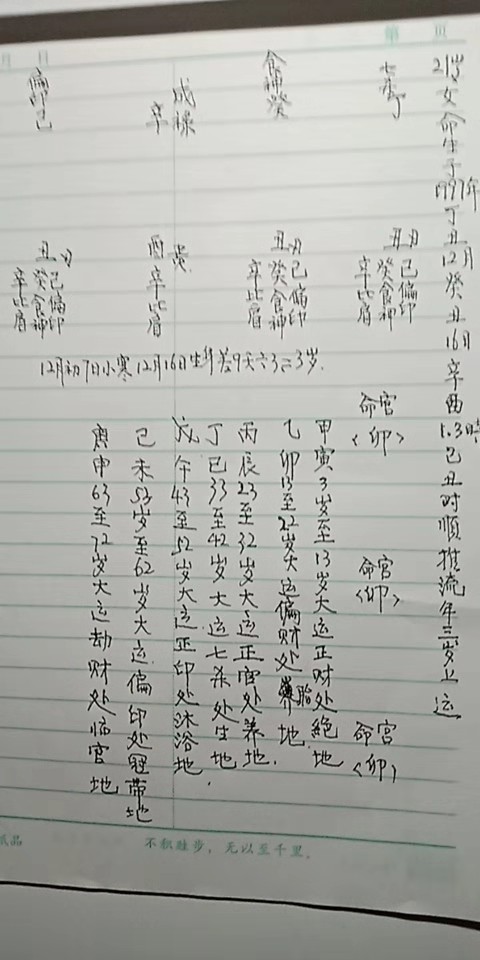 月 日
第 页
21岁女命生于1997年丁丑12月癸丑16日辛酉1.3時己丑时順推流年三岁上运
七杀丁
食神癸
成様
辛
偏印己
丑月
己偏印
癸食神
辛比肩
丑月
己偏印
癸食神
辛比肩
酉
辛比肩
丑月
己偏印
癸食神
辛比肩
12月初7日小寒12月16日生年差9天六3=3岁.
命宫
<卯>
命宫
<卯>
命宫
<卯>
甲寅3岁至13岁大运正财处絕地
乙卯13至22岁大运偏财处胎地.
丙辰23至32岁大运正官处养地.
丁巳33至42岁大运七杀处生地.
戊午43至52岁大运正印处沐浴地
己未53岁至62岁大运偏印处冠带地
庚申63至72岁大运劫财处临官地
纸品
不积跬步，无以至千里.